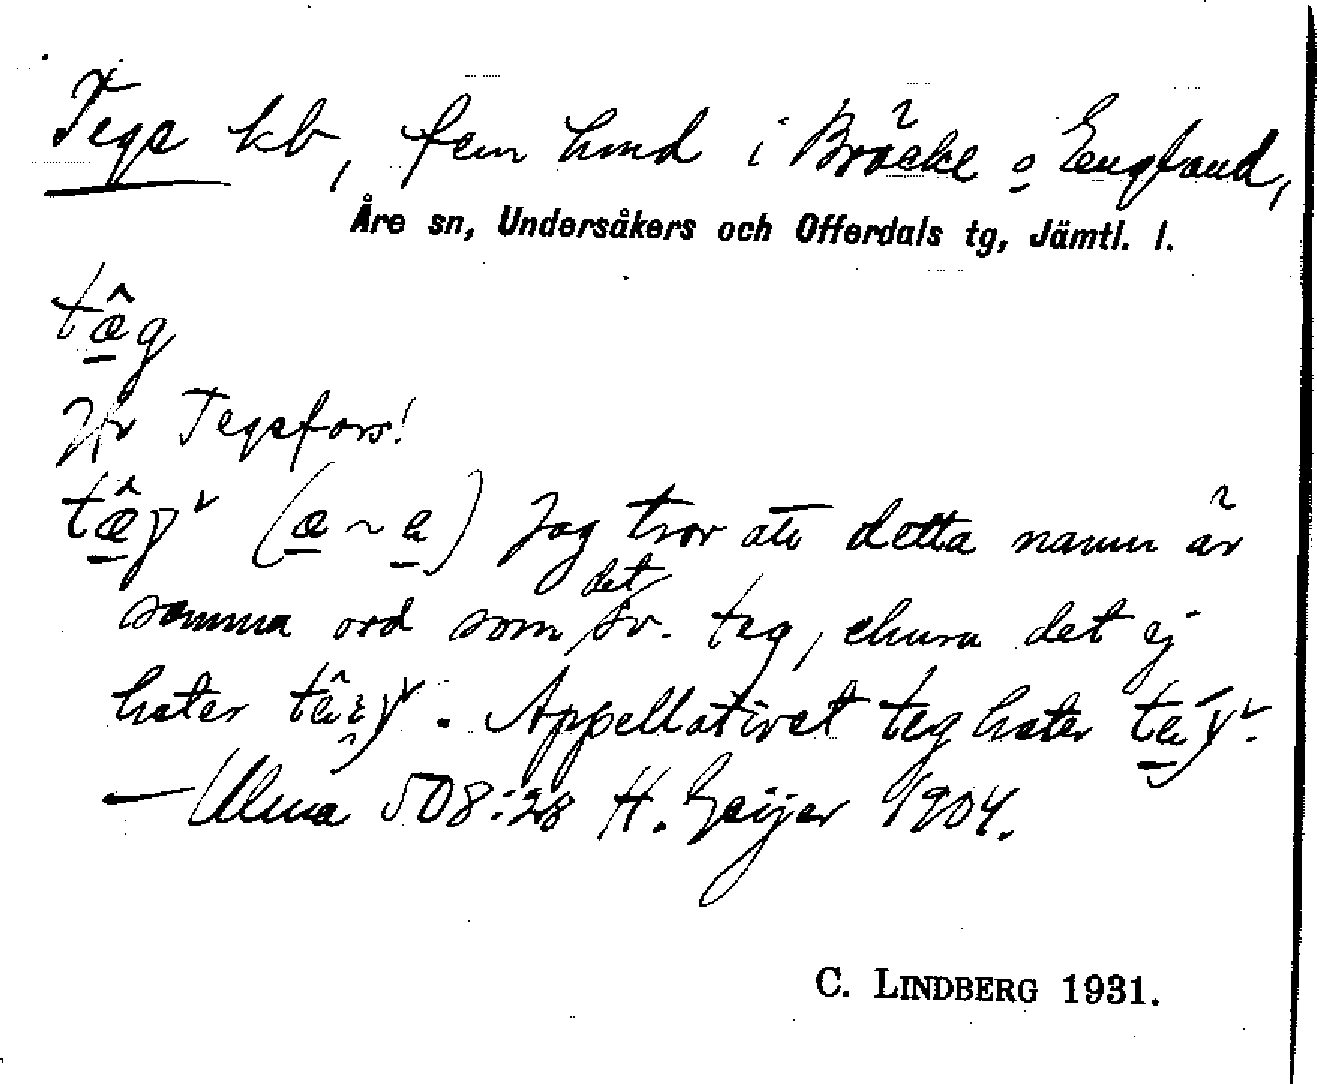 Tege kb, fem hmd i Bräcke o England,
Åre sn, Undersåkers och Offerdals tg, Jämtl. l.
tæ̂g
Jfr Tegefors!
tæ̂γ (æ ~ a) Jag tror att detta namn är
samma ord som det sv. teg, ehuru det ej
heter. Appellativet teg heter
— Ulma 508:28 H. Geijer 1904.
C. LINDBERG 1931.